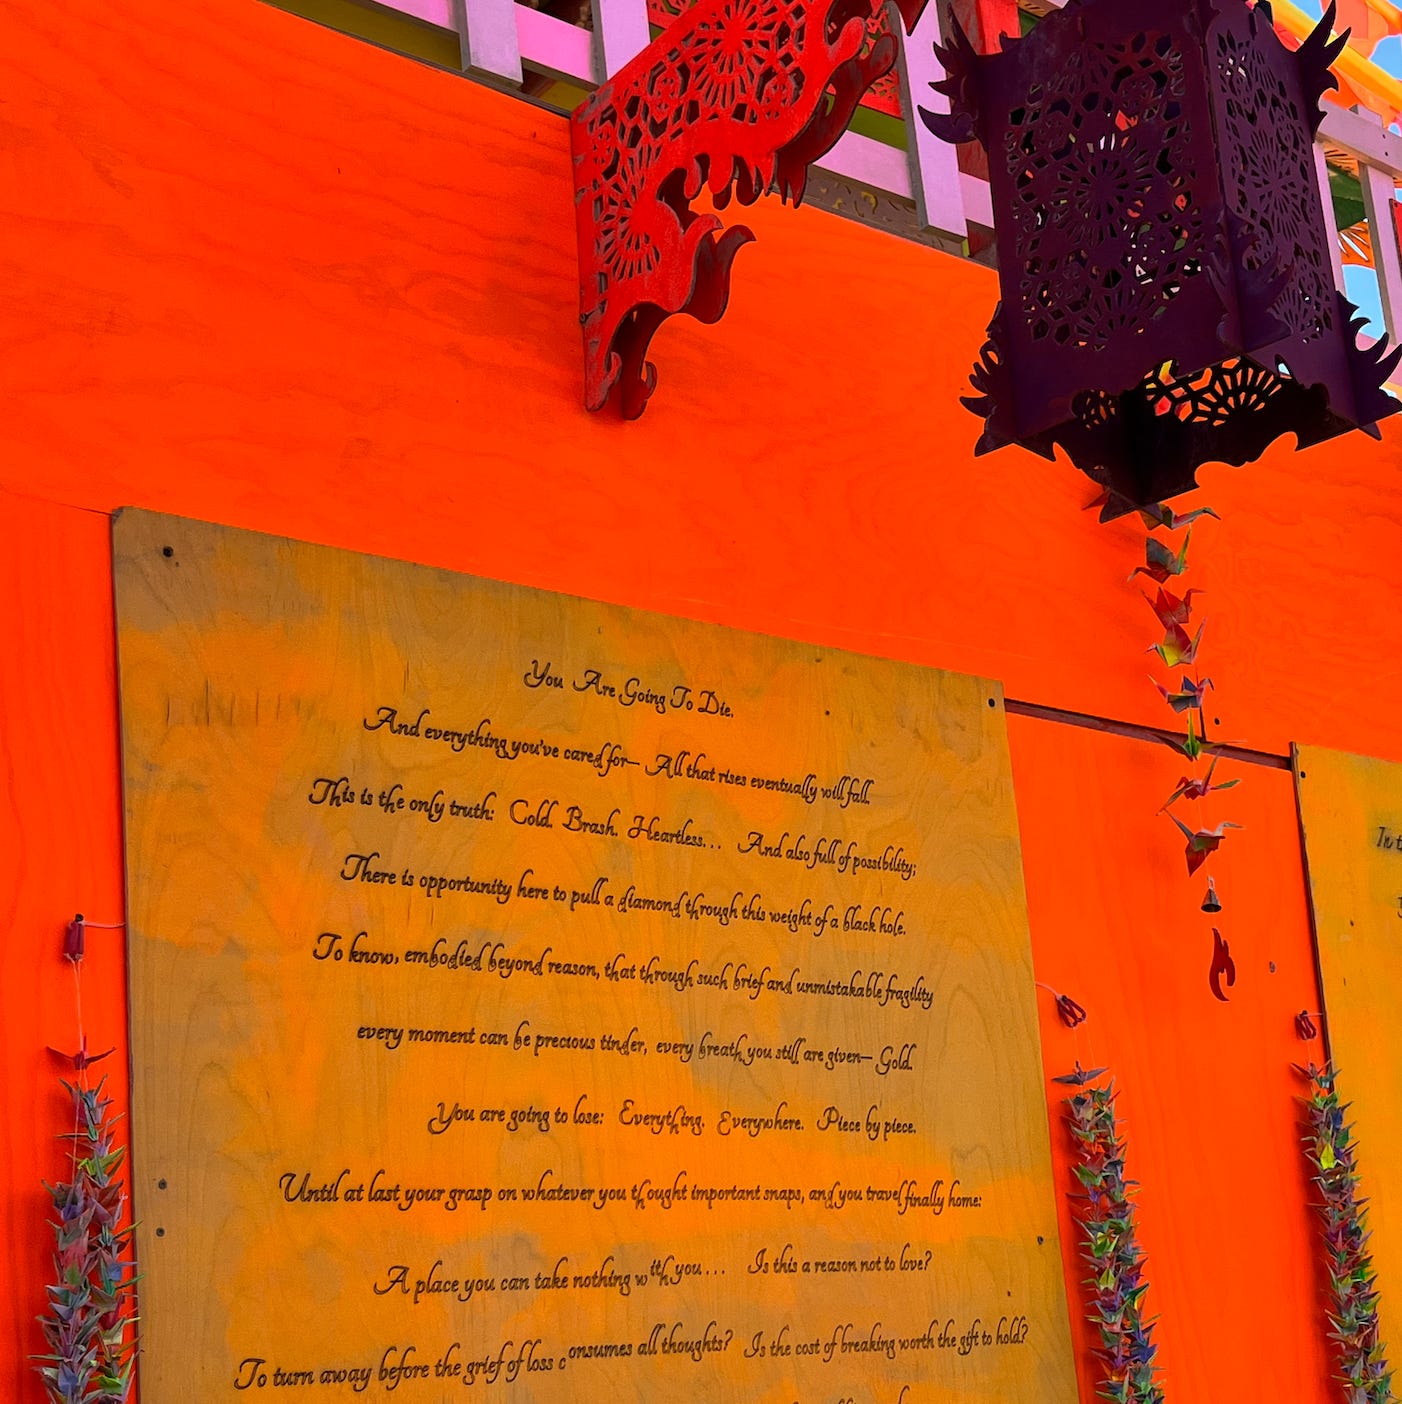 You Are Going To Die.
And everything you've cared for— All that rises eventually will fall.
This is the only truth: Cold. Brash. Heartless... And also full of possibility;
There is opportunity here to pull a diamond through this weight of a black hole.
To know, embodied beyond reason, that through such brief and unmistakable fragility
every moment can be precious tinder, every breath you still are given— Gold.
You are going to lose: Everything. Everywhere. Piece by piece.
Until at last your grasp on whatever you thought important snaps, and you travel finally home:
A place you can take nothing with you... Is this a reason not to love?
To turn away before the grief of loss consumes all thoughts? Is the cost of breaking worth the gift to hold?
In